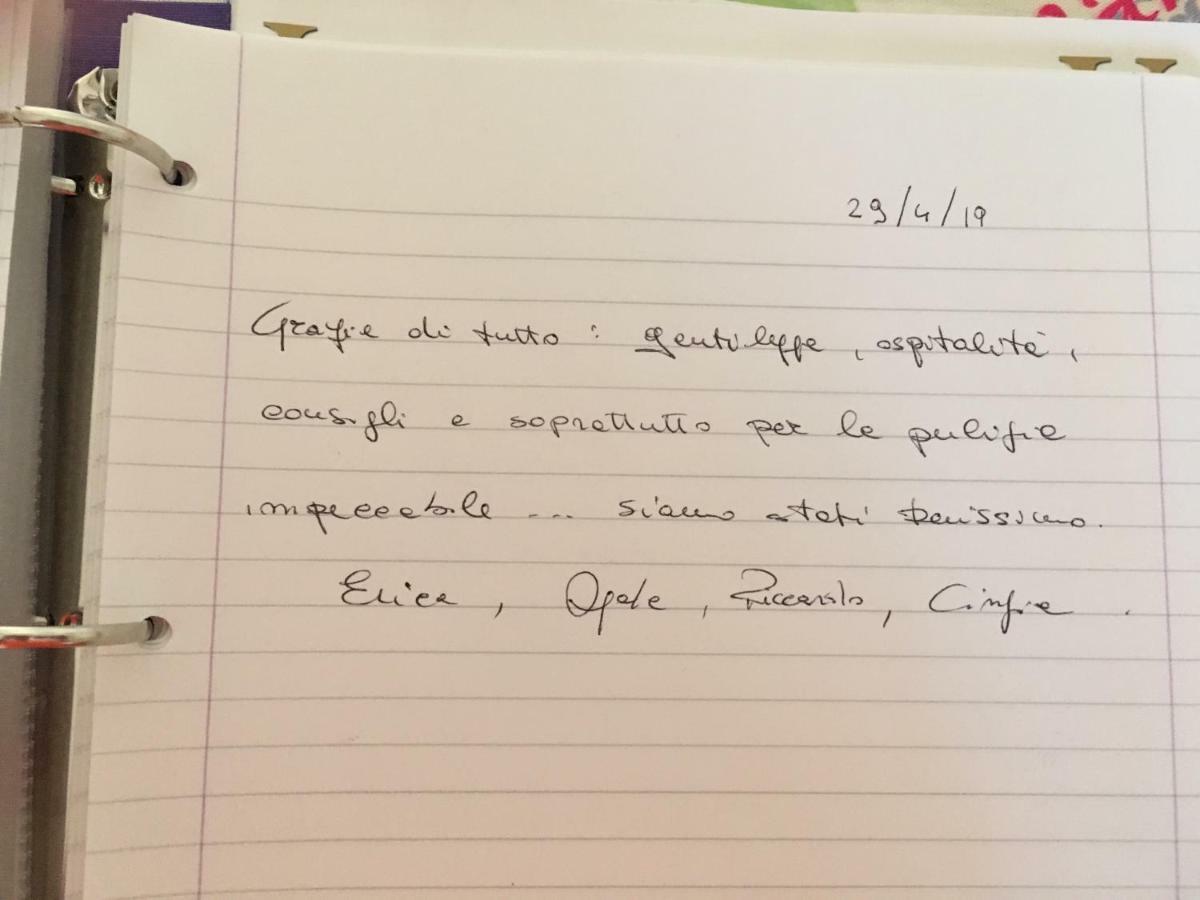 29/4/19
Grazie di tutto: gentilezze, ospitalità,
consigli e soprattutto per la pulizia
impeccabile ... siamo stati benissimo.
Erica, Opale, Riccardo, Cinzia.